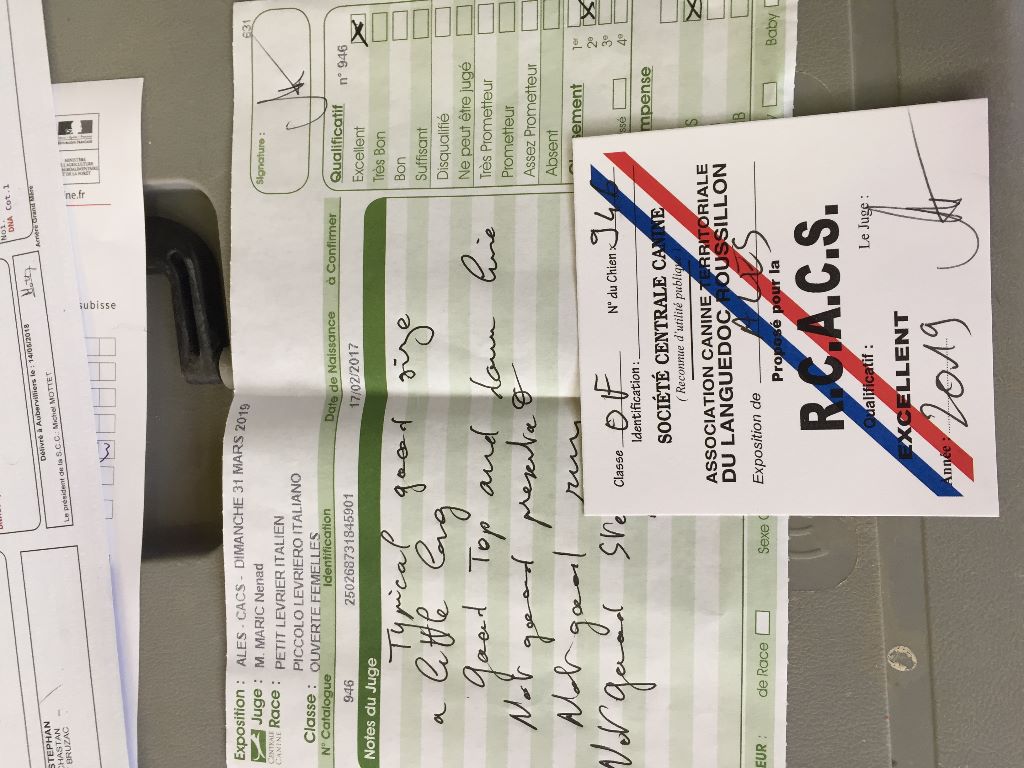 Exposition : ALES - CACS - DIMANCHE 31 MARS 2019
Juge : M. MARIC Nenad
Race : PETIT LEVRIER ITALIEN
PICCOLO LEVRIERO ITALIANO
Classe : OUVERTE FEMELLES
CENTRALE
CANINE
N° Catalogue Identification Date de Naissance à Confirmer
946 250268731845901 17/02/2017
Notes du Juge
Typical good size
a little long
good Top and down line
Not good
Not good
Not good
EUR : de Race Sexe
Signature :
631
Qualificatif n° 946
Excellent
Très Bon
Bon
Suffisant
Disqualifié
Ne peut être jugé
Très Prometteur
Prometteur
Assez Prometteur
Absent
ement
1er
2e
3e
4e
ssé
mpense
S
B
Baby
Classe OF N° du Chien 946
Identification :
SOCIÉTÉ CENTRALE CANINE
( Reconnue d'utilité publique
ASSOCIATION CANINE TERRITORIALE
DU LANGUEDOC ROUSSILLON
Exposition de ALES
Proposé pour la
R.C.A.C.S.
Qualificatif : Le Juge :
EXCELLENT
Année : 2019
MINISTÈRE
ne.fr
subisse
No1.
DNA Cot.1
Arrière Grand Mère
Délivré à Aubervilliers le : 14/05/2018
Le président de la S.C.C. Michel MOTTET
STEPHAN
CHASTAN
BRUZAC